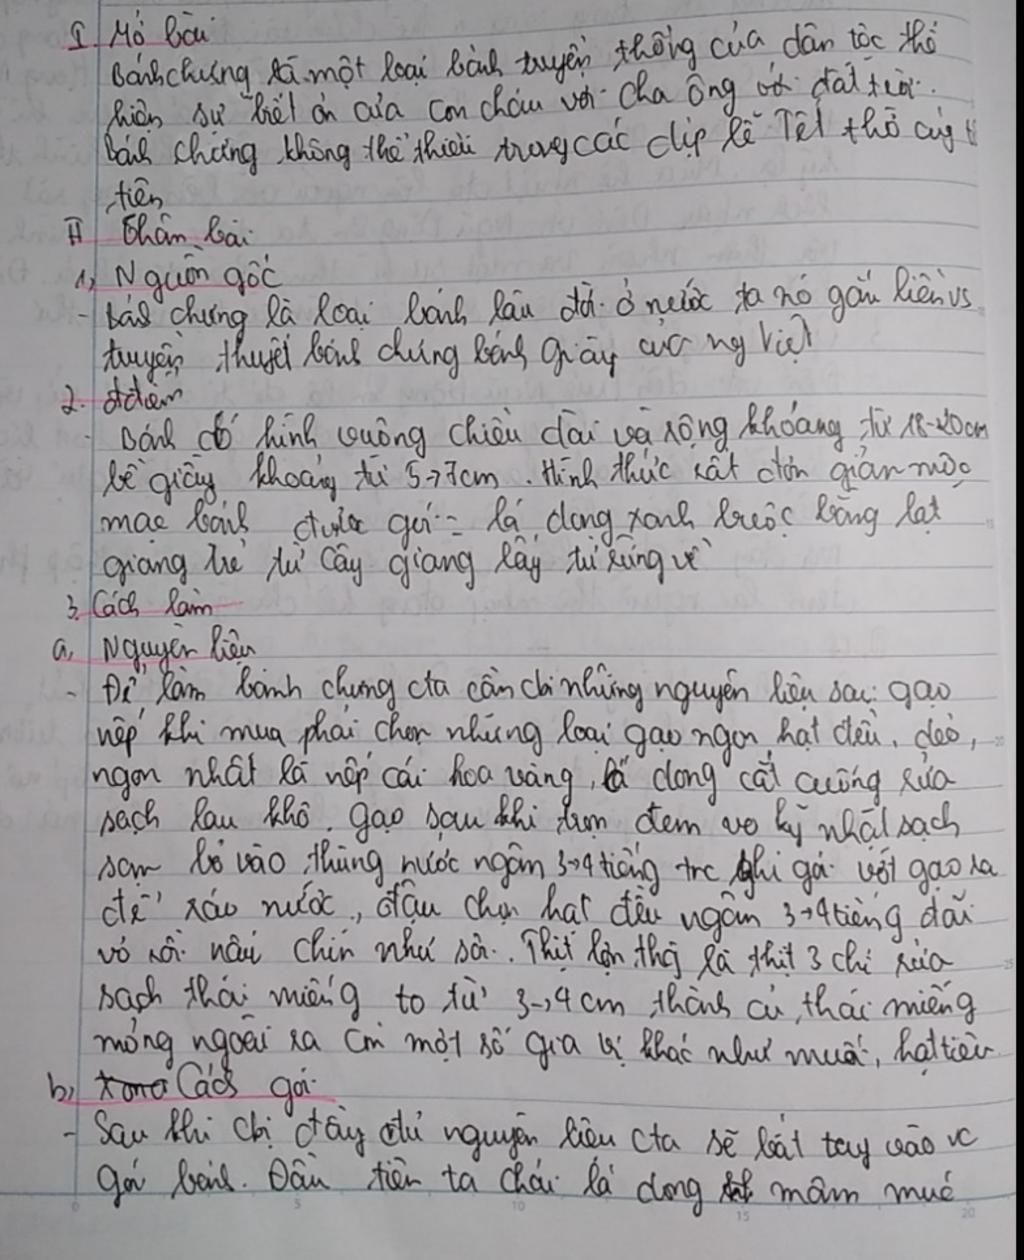 I Mở bài
Bánh chưng là một loại bánh truyền thống của dân tộc thể
hiện sự biết ơn của con cháu với cha ông với đất trời.
Bánh chưng không thể thiếu trong các dịp lễ Tết thờ cúng
tiên
II Thân bài
1, Nguồn gốc
- Bánh chưng là loại bánh lâu đời ở nước ta nó gắn liền vs
truyền thuyết bánh chưng bánh giầy của ng Việt
2. đ điểm
- Bánh có hình vuông chiều dài và rộng khoảng từ 18-20cm
bề giầy khoảng từ 5→7cm. Hình thức rất đơn giản mộc
mạc bánh được gói = lá dong xanh buộc bằng lạt
giang tre từ cây giang lấy từ rừng về
3. Cách làm
a, Nguyên liệu
- Để làm bánh chưng cta cần cbi những nguyên liệu sau: gạo
nếp khi mua phải chọn những loại gạo ngon hạt đều, dẻo,
ngon nhất là nếp cái hoa vàng, lá dong cắt cuống rửa
sạch lau khô. gạo sau khi trọn đem vo kỹ nhặt sạch
sạn bỏ vào thùng nước ngâm 3→4 tiếng trc khi gói vớt gạo ra
để ráo nước, đậu chọn hạt đều ngâm 3→4 tiếng đãi
vỏ rồi nấu chín như sôi. Thịt lợn là thịt 3 chỉ rửa
sạch thái miếng to từ 3→4 cm, hành củ thái miếng
mỏng ngoài ra còn một số gia vị khác như muối, hạt tiêu
b, Cách gói
- Sau khi cbị đầy đủ nguyên liệu cta sẽ bắt tay vào vc
gói bánh. Đầu tiên ta chải lá dong mâm múc